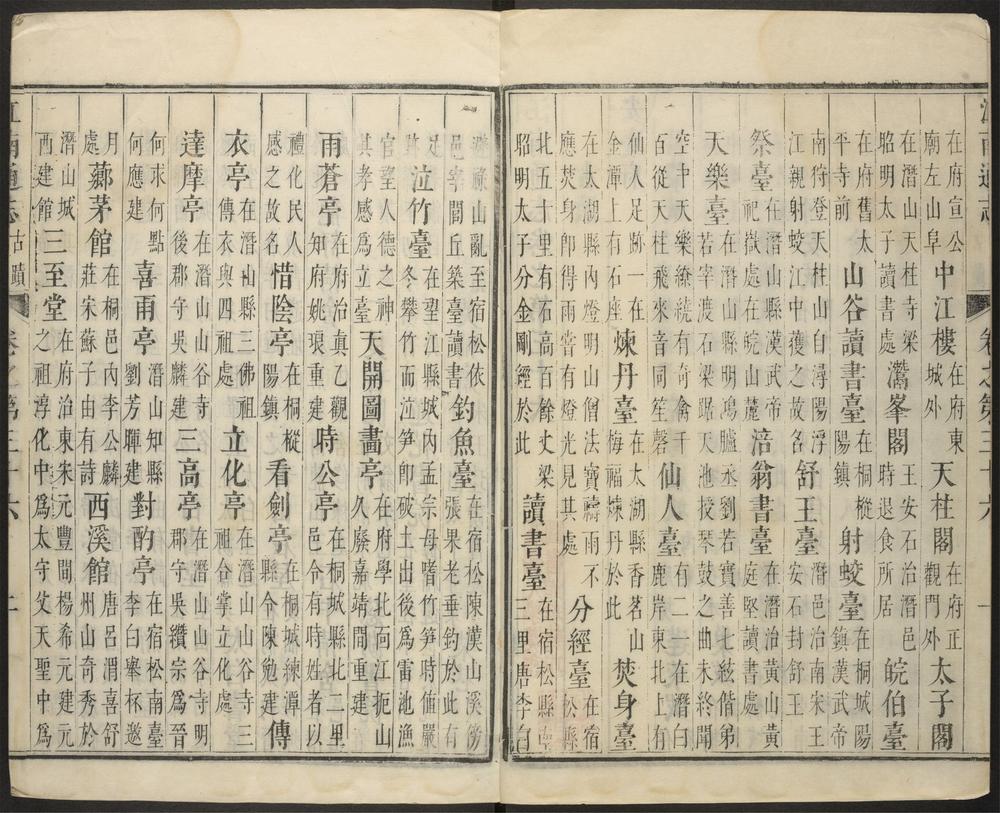 江南通志 卷之第三十六 一
在府宣公廟左山阜 中江樓 在府東城外 天柱閣 在府正觀門外 太子閣
在潛山天柱寺梁昭明太子讀書處 灊峯閣 王安石治潛邑時退食所居 皖伯臺
在府舊太平寺前 山谷讀書臺 在桐樅陽鎮 射蛟臺 在桐城陽鎮漢武帝
南狩登天柱山自潯陽浮江親射蛟江中獲之故名 舒王臺 潛邑治南宋王安石封舒王
祭臺 在潛山縣漢武帝祀嶽處在皖山麓 涪翁書臺 在潛治黃山黃庭堅讀書處
天樂臺 在潛山縣明鴻臚丞劉若寶善七絃偕弟若宰渡石梁踞天池授琴鼓之曲未終聞
空中天樂繚繞有奇禽千百從天柱飛來音同笙磬 仙人臺 有二一在潛白鹿岸東北上有
仙人足跡一在金輝上有石座 煉丹臺 在太湖縣香茗山梅福煉丹於此 焚身臺
在太湖縣內燈明山僧法寶禱雨不應焚身卽得雨嘗有燈光見其處 分經臺 在宿松縣
北五十里有石高百餘丈梁昭明太子分金剛經於此 讀書臺 在宿松縣三里唐李白
祿山亂至宿松依邑宰閭丘築臺讀書 釣魚臺 在宿松陳漢山溪傍張果老垂釣於此有
足 泣竹臺 在望江縣城內孟宗母嗜竹笋時値嚴冬攀竹而泣笋卽破土出後爲雷池漁
官望人德之神其孝感爲立臺 天開圖畫亭 在府學北面江扼山久廢嘉靖間重建
雨蒼亭 在府治真乙觀知府姚琅重建 時公亭 在桐城縣北二里邑令有時姓者以
禮化民人感之故名 惜陰亭 在桐樅陽鎮 看劍亭 在桐城練潭縣令陳勉建 傳
衣亭 在潛山縣三佛祖傳衣與四祖處 立化亭 在潛山山谷寺三祖合掌立化處
達摩亭 在潛山山谷寺後郡守吳麟建 三高亭 在潛山山谷寺明郡守吳纘宗爲晉
何求何點何應建 喜雨亭 潛山知縣劉芳暉建 對酌亭 在宿松南臺李白舉杯邀
月處 薌茅館 在桐邑內李公麟莊宋蘇子由有詩 西溪館 唐呂渭喜舒州山奇秀於
潛山城西建館 三至堂 在府治東宋元豐間楊希元建元之祖淳化中爲太守父天聖中爲
江南通志 古蹟 卷之第三十六 二